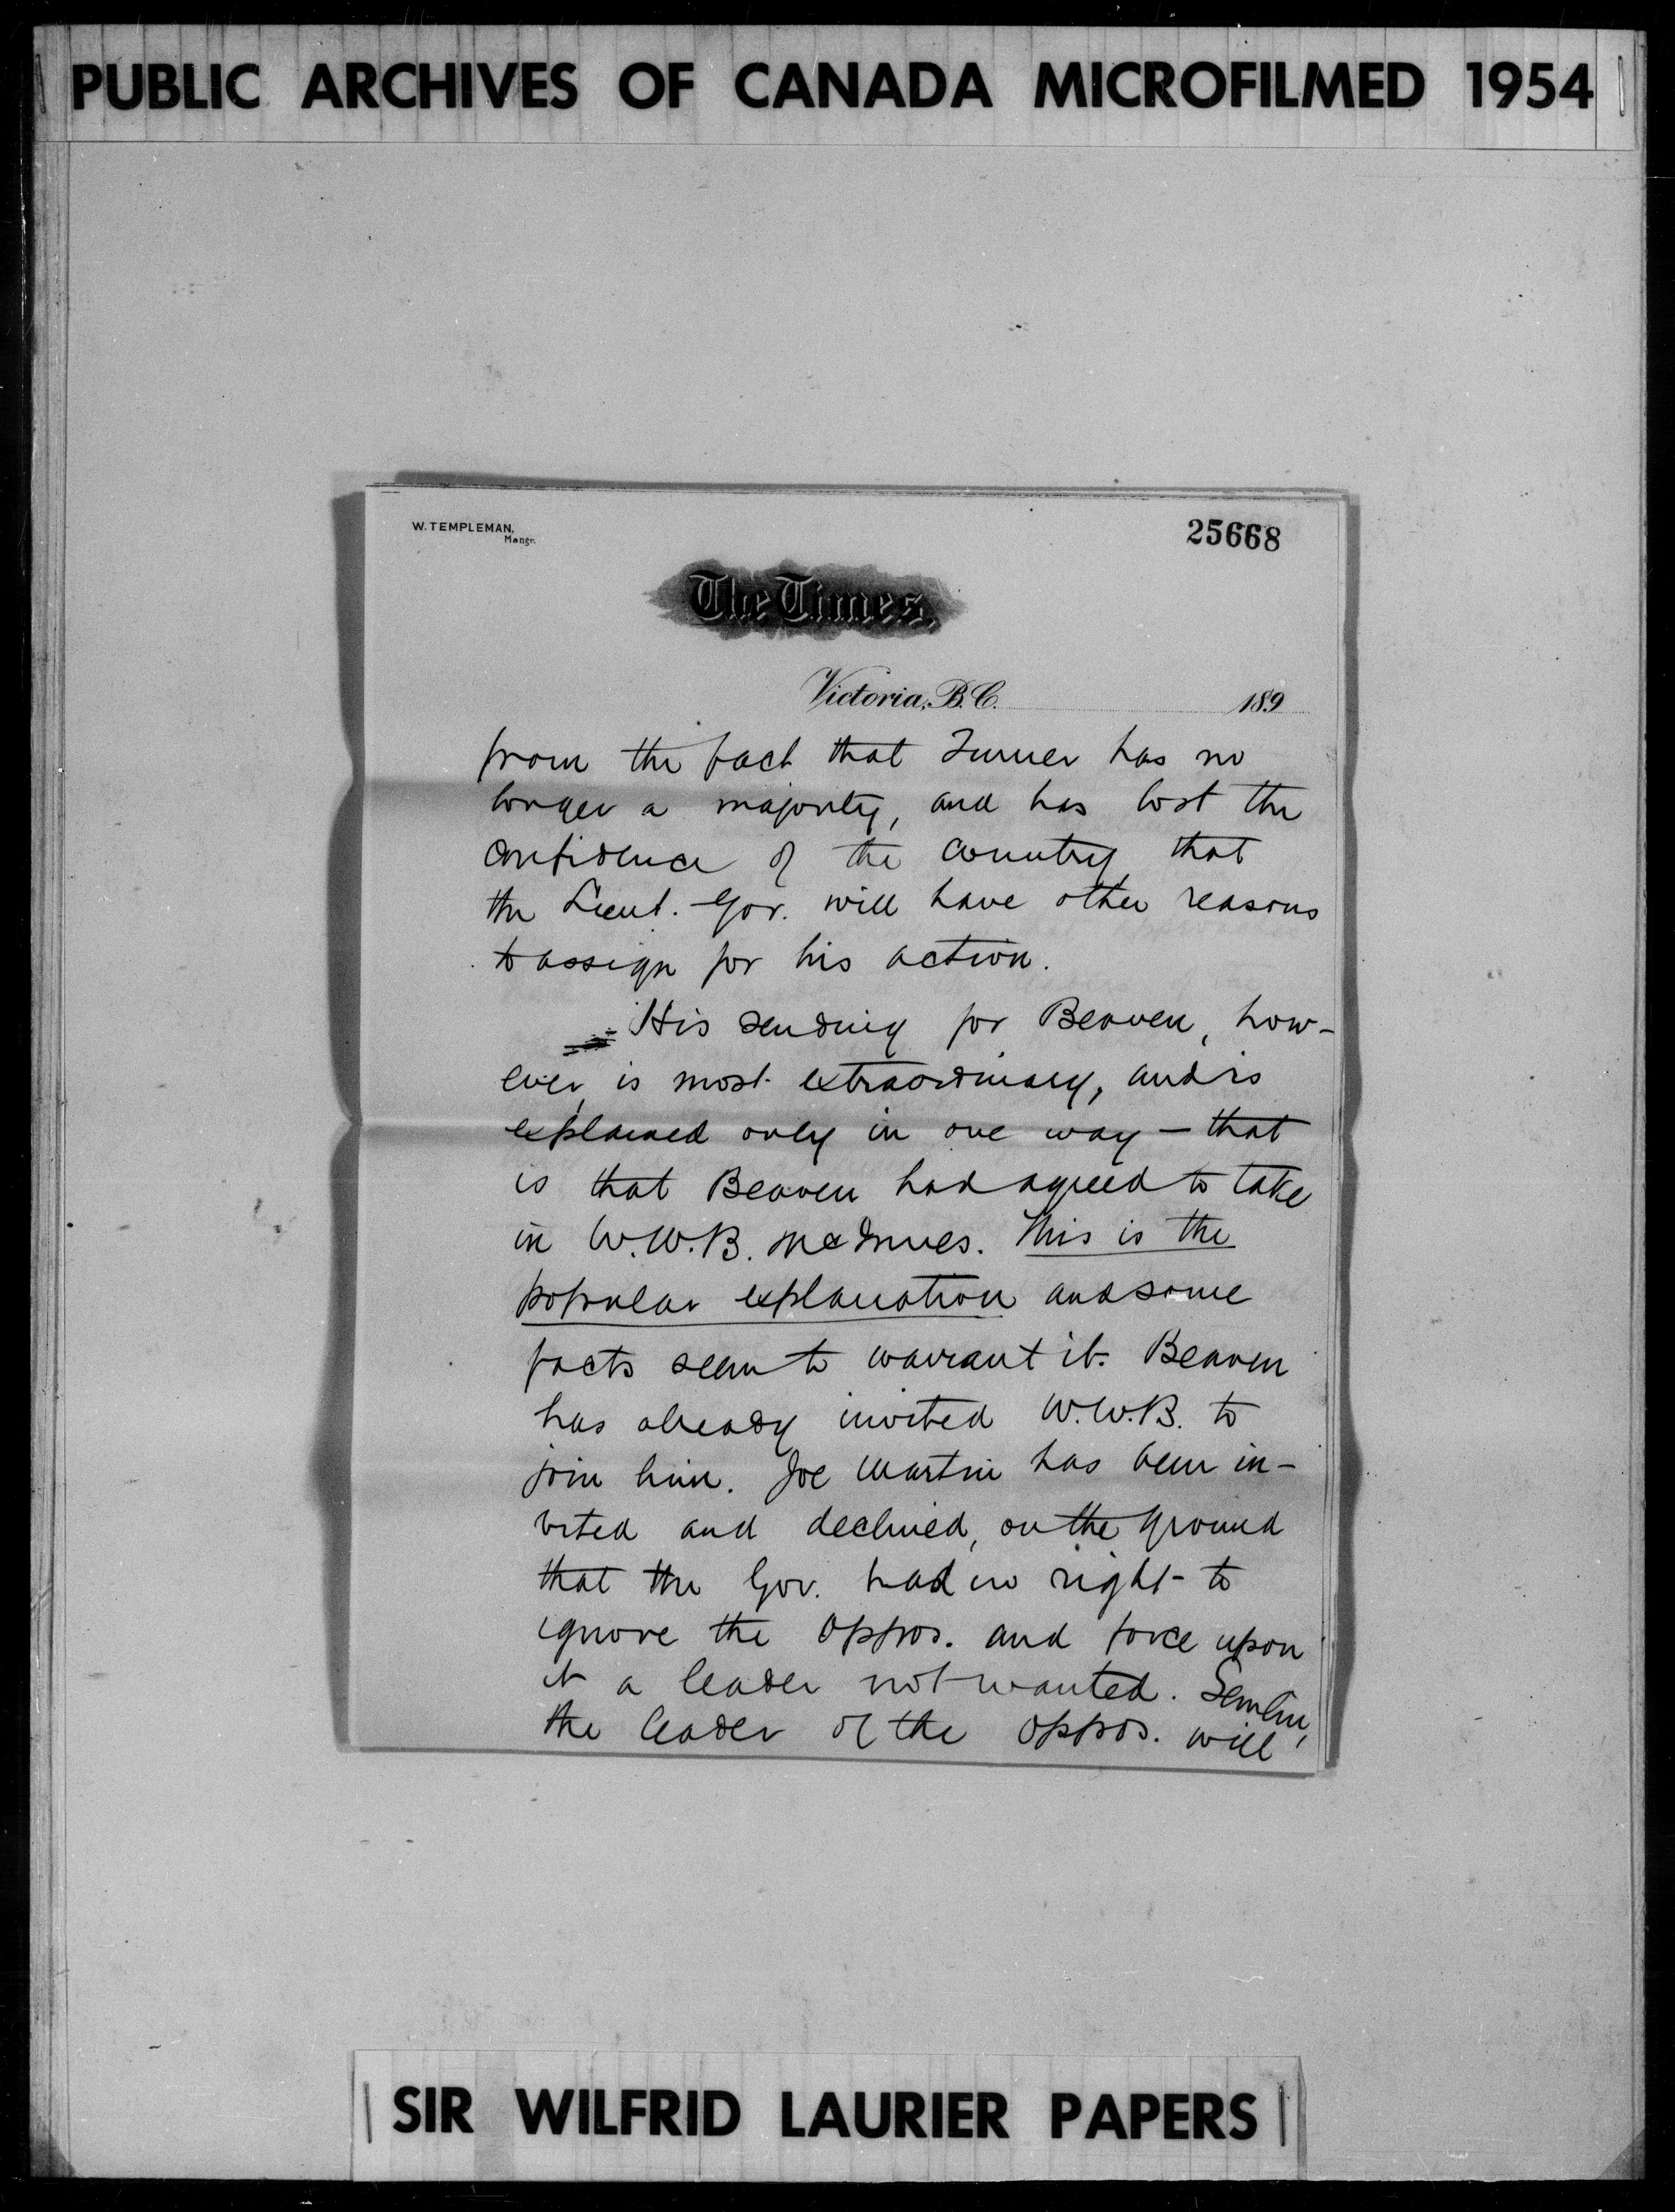 PUBLIC ARCHIVES OF CANADA MICROFILMED 1954
W. TEMPLEMAN,
Mangr.
25668
The Times,
Victoria, B.C. 189
from the fact that Turner has no
longer a majority, and has lost the
confidence of the country that
the Lieut. Gov. will have other reasons
to assign for his action.
His sending for Beaven, how-
ever, is most extraordinary, and is
explained only in one way — that
is that Beaven had agreed to take
in W.W.B. McInnes. This is the
popular explanation and some
facts seem to warrant it. Beaven
has already invited W.W.B. to
join him. Joe Martin has been in-
vited and declined, on the ground
that the Gov. had no right to
ignore the oppos. and force upon
it a leader not wanted. Semlin,
the leader of the oppos. will
SIR WILFRID LAURIER PAPERS